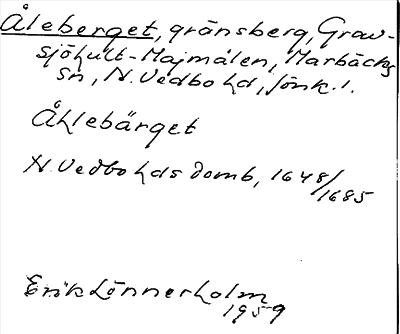 Åleberget, gränsberg, Grav-
sjöhult-Majmålen, Marbäcks
sn, N. Vedbo hd, Jönk. l.
Åhlebärget
N. Vedbo hds domb, 1648/
1685
Erik Lönnerholm
1959